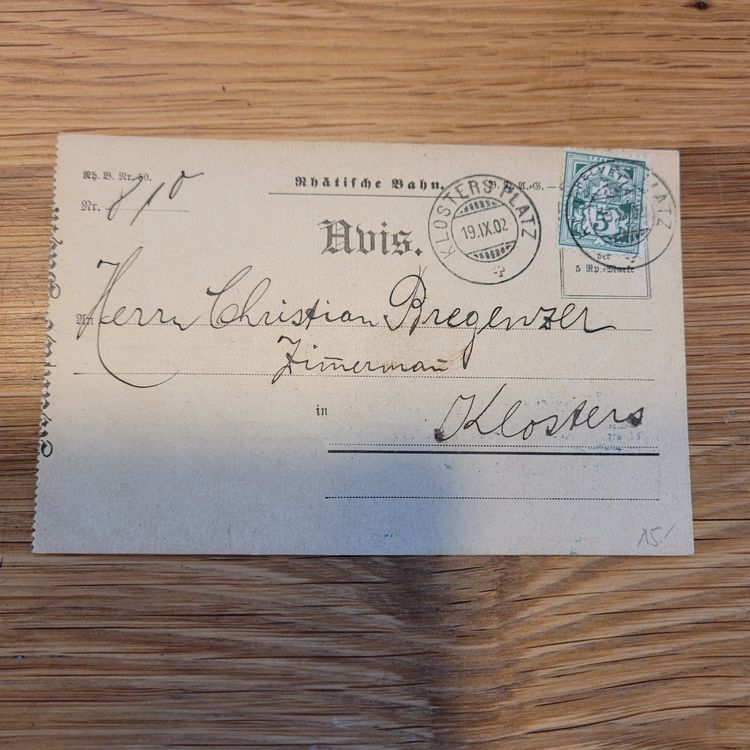 Rh. B. Nr. 50.
Rhätische Bahn.
Nr. 810
Avis.
KLOSTERS PLATZ
19.IX.02
HELVETIA
5
PLATZ
der
5 Rp.=Marke
An Herrn Christian Bregenzer
Zimerman
in Klosters
15.-